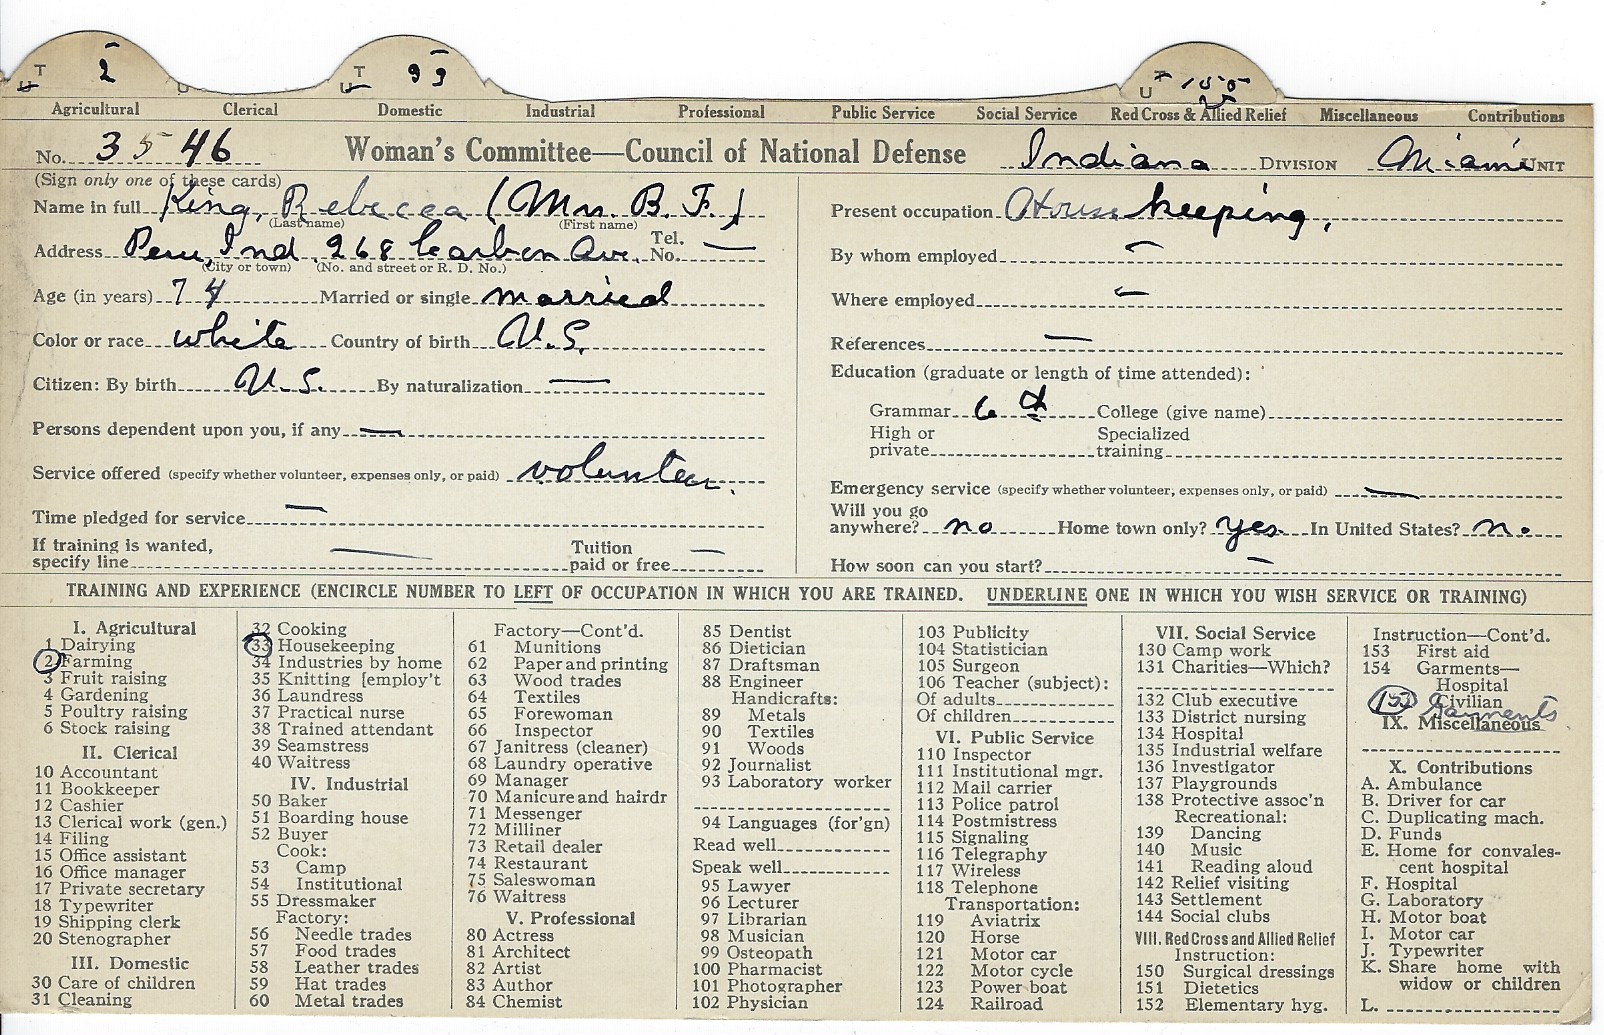 T 2 T 33 T 155
U U U
Agricultural Clerical Domestic Industrial Professional Public Service Social Service Red Cross & Allied Relief Miscellaneous Contributions
No. 3546 Woman's Committee—Council of National Defense Indiana DIVISION Miami UNIT
(Sign only one of these cards)
Name in full King, Rebecca (Mrs. B. F.)
(Last name) (First name)
Address Peru, Ind. 268 Carbon Ave. Tel. No. —
(City or town) (No. and street or R. D. No.)
Age (in years) 74 Married or single married
Color or race white Country of birth U.S.
Citizen: By birth U.S. By naturalization —
Persons dependent upon you, if any —
Service offered (specify whether volunteer, expenses only, or paid) volunteer.
Time pledged for service —
If training is wanted,
specify line — Tuition paid or free —
Present occupation House keeping,
By whom employed —
Where employed —
References —
Education (graduate or length of time attended):
Grammar 6th College (give name)
High or private Specialized training
Emergency service (specify whether volunteer, expenses only, or paid) —
Will you go
anywhere? no Home town only? yes In United States? no
How soon can you start? —
TRAINING AND EXPERIENCE (ENCIRCLE NUMBER TO LEFT OF OCCUPATION IN WHICH YOU ARE TRAINED. UNDERLINE ONE IN WHICH YOU WISH SERVICE OR TRAINING)
I. Agricultural
1 Dairying
2 Farming
3 Fruit raising
4 Gardening
5 Poultry raising
6 Stock raising
II. Clerical
10 Accountant
11 Bookkeeper
12 Cashier
13 Clerical work (gen.)
14 Filing
15 Office assistant
16 Office manager
17 Private secretary
18 Typewriter
19 Shipping clerk
20 Stenographer
III. Domestic
30 Care of children
31 Cleaning
32 Cooking
33 Housekeeping
34 Industries by home
35 Knitting [employ't
36 Laundress
37 Practical nurse
38 Trained attendant
39 Seamstress
40 Waitress
IV. Industrial
50 Baker
51 Boarding house
52 Buyer
Cook:
53 Camp
54 Institutional
55 Dressmaker
Factory:
56 Needle trades
57 Food trades
58 Leather trades
59 Hat trades
60 Metal trades
Factory—Cont'd.
61 Munitions
62 Paper and printing
63 Wood trades
64 Textiles
65 Forewoman
66 Inspector
67 Janitress (cleaner)
68 Laundry operative
69 Manager
70 Manicure and hairdr
71 Messenger
72 Milliner
73 Retail dealer
74 Restaurant
75 Saleswoman
76 Waitress
V. Professional
80 Actress
81 Architect
82 Artist
83 Author
84 Chemist
85 Dentist
86 Dietician
87 Draftsman
88 Engineer
Handicrafts:
89 Metals
90 Textiles
91 Woods
92 Journalist
93 Laboratory worker
94 Languages (for'gn)
Read well
Speak well
95 Lawyer
96 Lecturer
97 Librarian
98 Musician
99 Osteopath
100 Pharmacist
101 Photographer
102 Physician
103 Publicity
104 Statistician
105 Surgeon
106 Teacher (subject):
Of adults
Of children
VI. Public Service
110 Inspector
111 Institutional mgr.
112 Mail carrier
113 Police patrol
114 Postmistress
115 Signaling
116 Telegraphy
117 Wireless
118 Telephone
Transportation:
119 Aviatrix
120 Horse
121 Motor car
122 Motor cycle
123 Power boat
124 Railroad
VII. Social Service
130 Camp work
131 Charities—Which?
132 Club executive
133 District nursing
134 Hospital
135 Industrial welfare
136 Investigator
137 Playgrounds
138 Protective assoc'n
Recreational:
139 Dancing
140 Music
141 Reading aloud
142 Relief visiting
143 Settlement
144 Social clubs
VIII. Red Cross and Allied Relief
Instruction:
150 Surgical dressings
151 Dietetics
152 Elementary hyg.
Instruction—Cont'd.
153 First aid
154 Garments—
Hospital
Civilian
Garments
IX. Miscellaneous
X. Contributions
A. Ambulance
B. Driver for car
C. Duplicating mach.
D. Funds
E. Home for convales-
cent hospital
F. Hospital
G. Laboratory
H. Motor boat
I. Motor car
J. Typewriter
K. Share home with
widow or children
L.